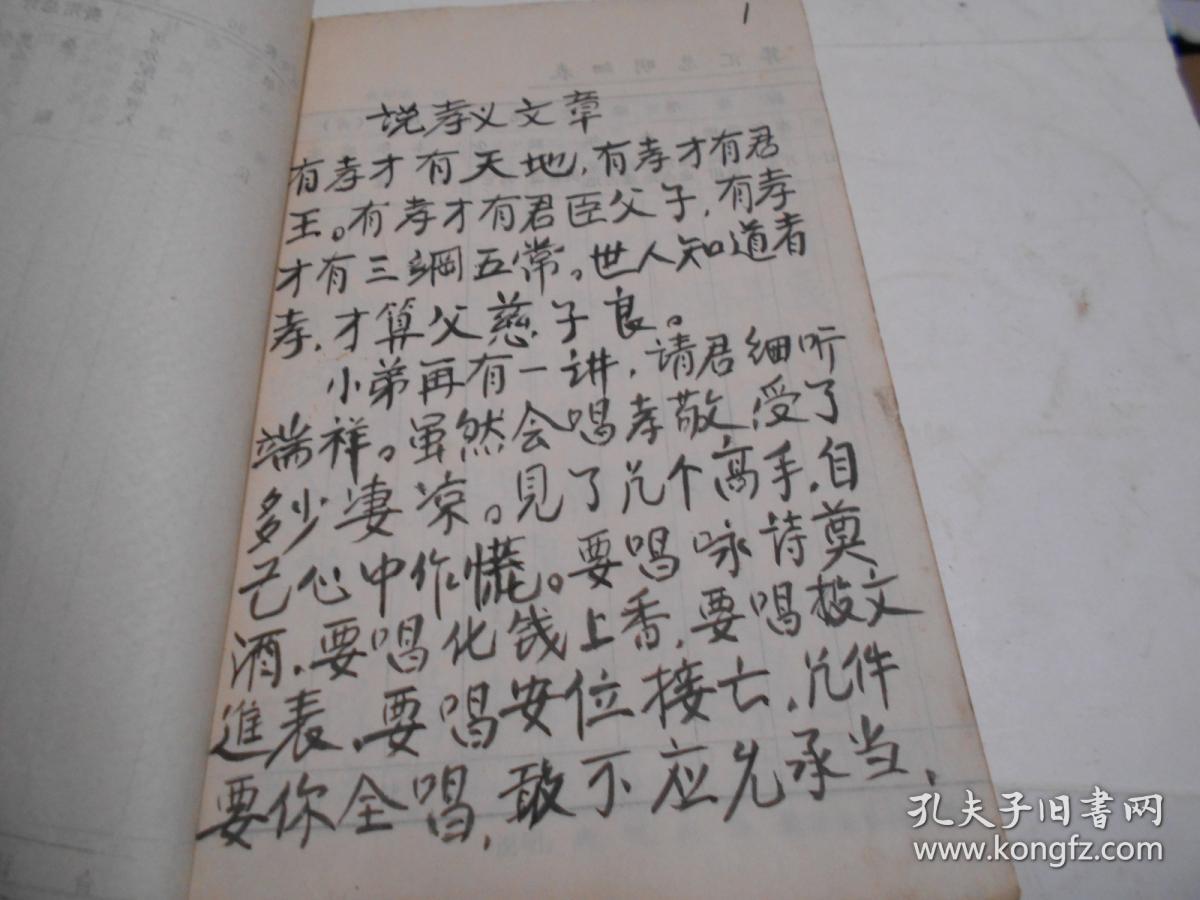 1
说孝义文章
有孝才有天地,有孝才有君
王。有孝才有君臣父子,有孝
才有三綱五常。世人知道者
孝,才算父慈子良。
小弟再有一讲,请君细听
端祥。虽然会唱孝敬,受了
多少凄凉。見了几个高手,自
己心中作慌。要唱咏诗奠
酒,要唱化钱上香,要唱文
進表,要唱安位接亡,几件
要你全唱,敢不应允承当、
孔夫子旧书网
www.kongfz.com